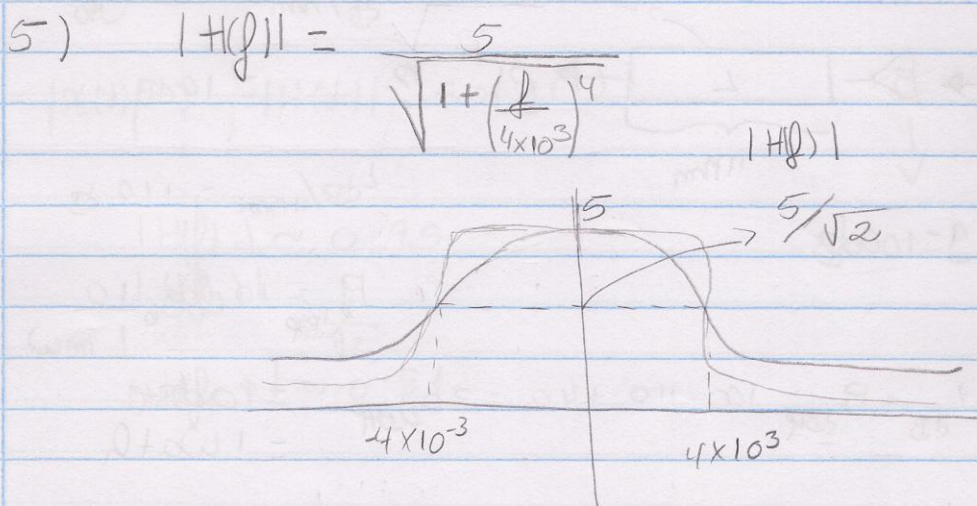 5) |H(f)| = 5 / √(1 + (f / 4×10³)⁴)
|H(f)|
5
5/√2
4×10⁻³
4×10³